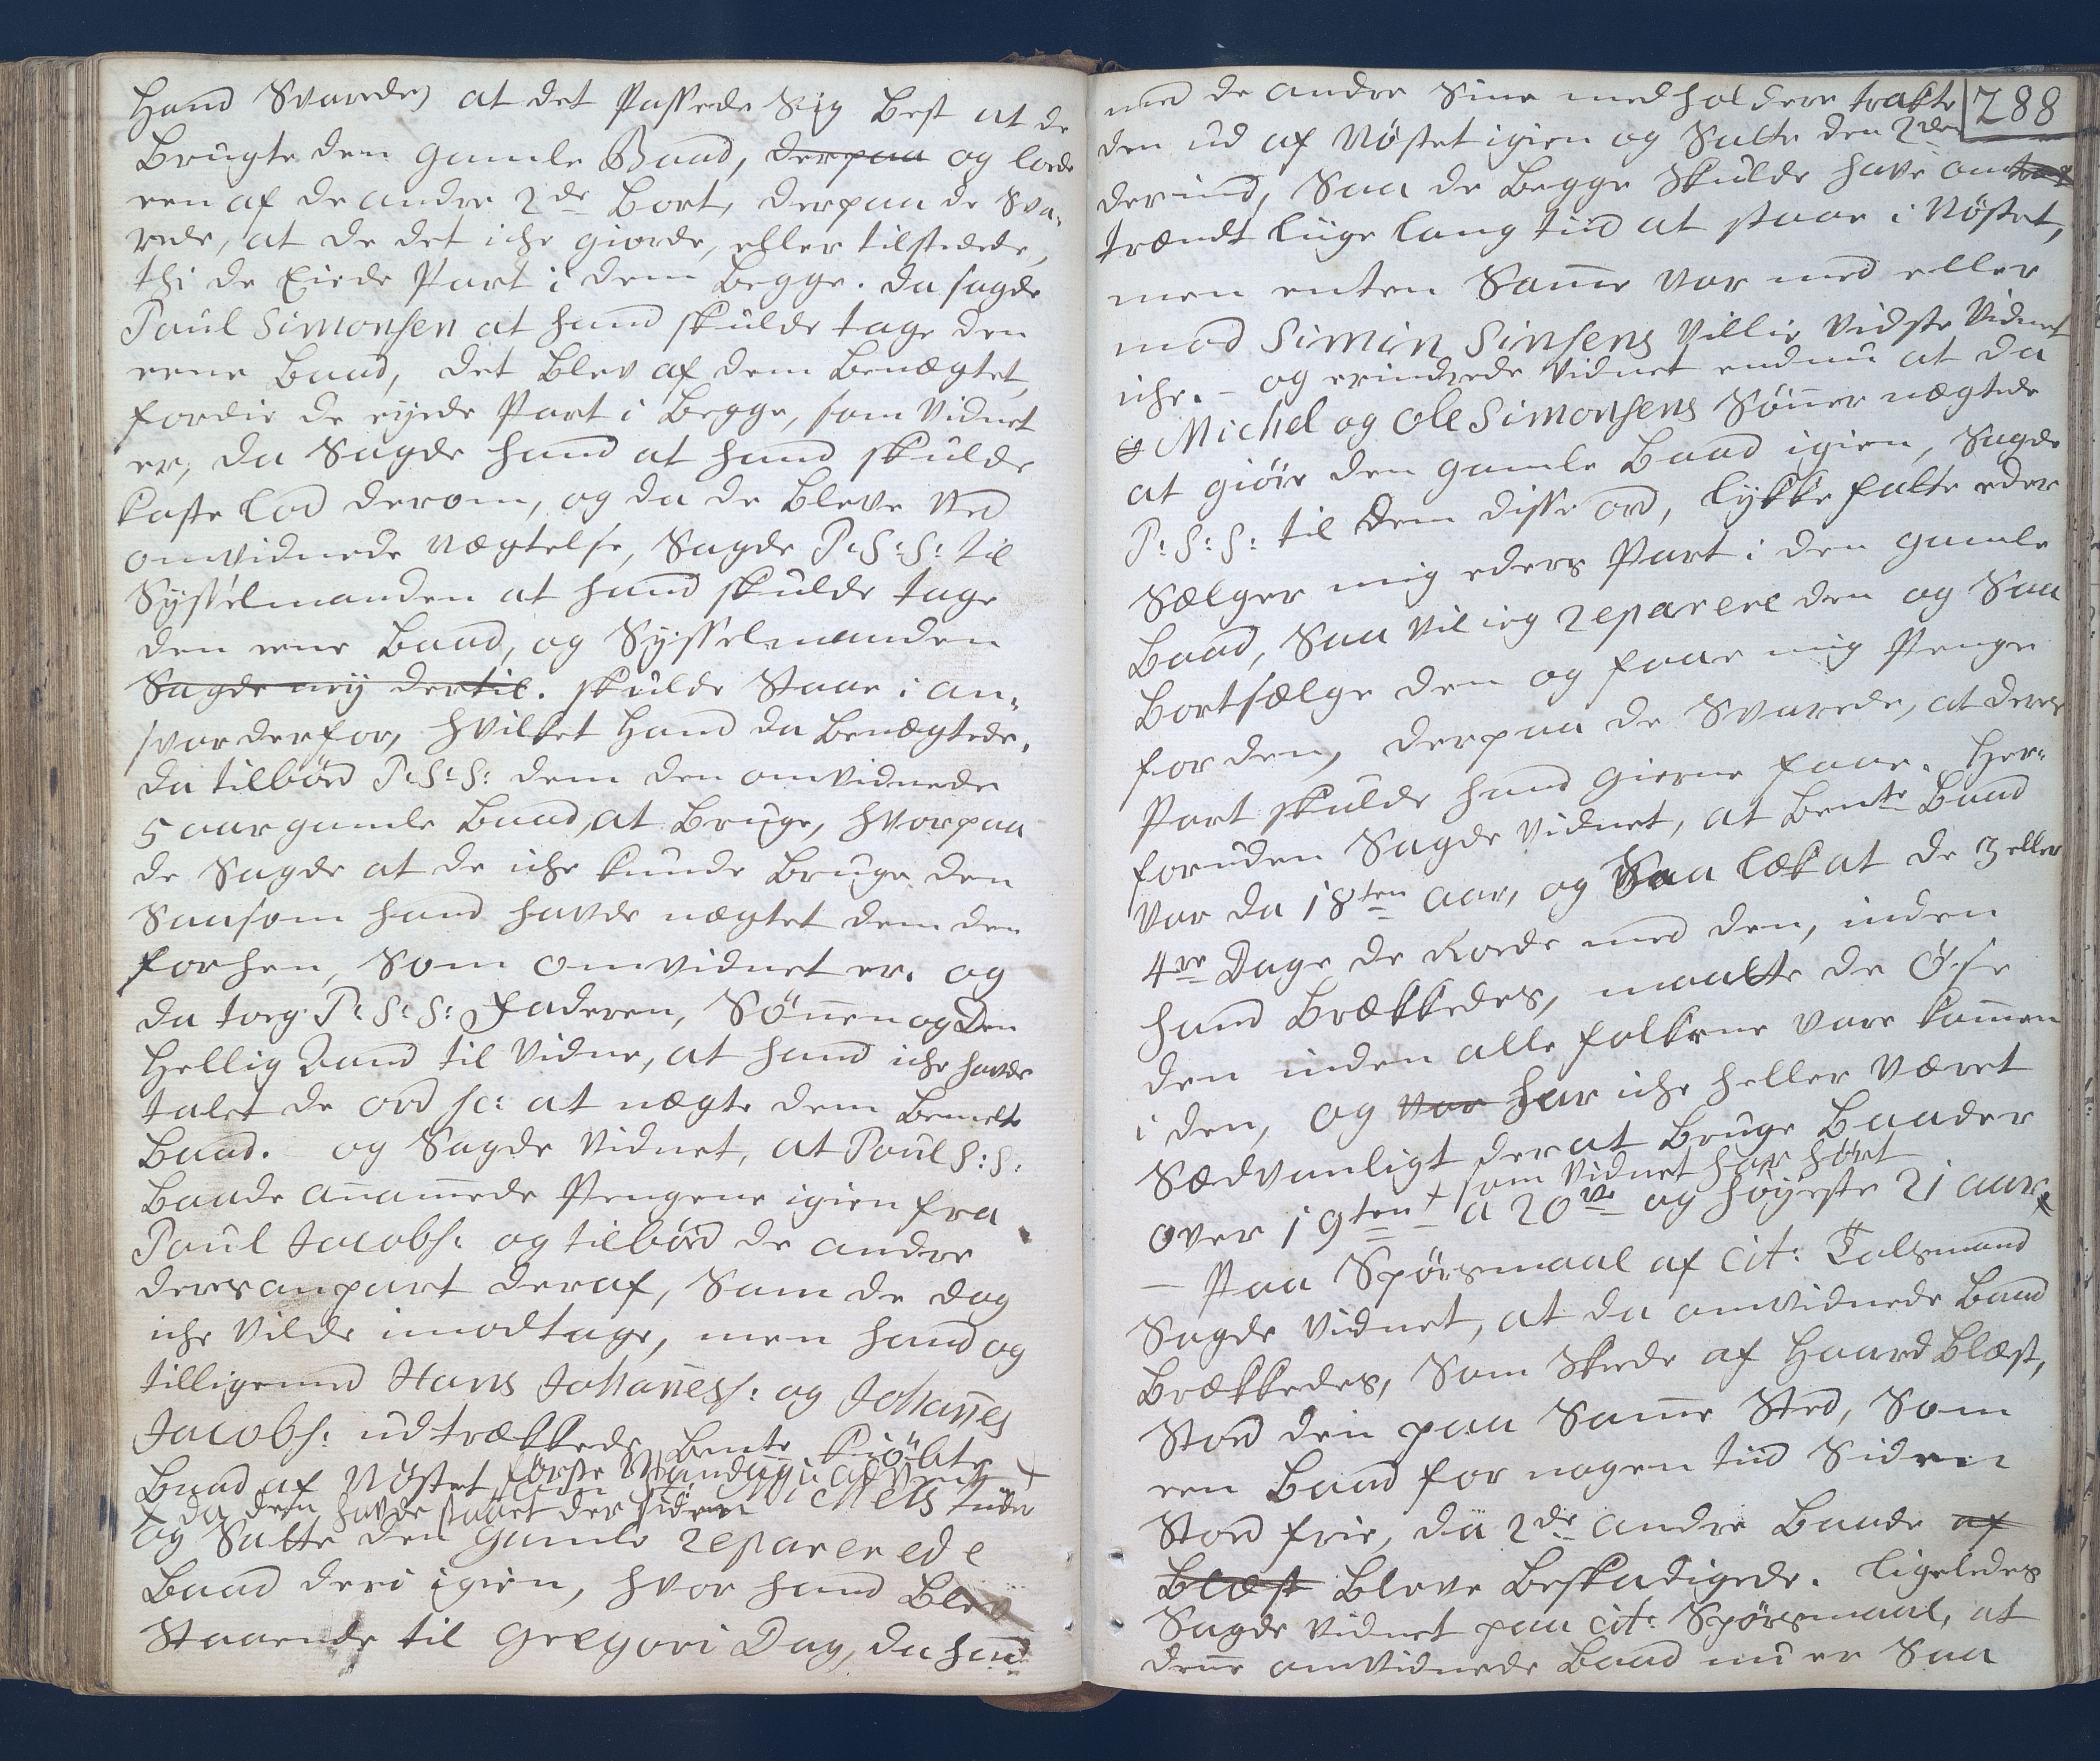 Hand Svarede, at det Passede Sig Best at de
Brugte den gamle Baad, derpaa og lode
een af de andre 2de Bort, derpaa de Sva-
rede, at de det iche giorde, eller tilstedede,
thi de Eiede Part i dem Begge. da sagde
Paul Simonsen at hand skulde tage den
eene Baad, det Blev af dem Benægtet,
fordie de eyede Part i Begge, som Vidnet
er, da Sagde hand at hand skulde
kaste Lod derom, og da de bleve Ved
omvidnede Nægtelse, Sagde P: S: S: til
Sysselmanden at hand skulde tage
den eene Baad, og Sysselmanden
Sagde ney dertil. skulde Staae i an-
svar derfor, hvilket Hand da Benægtede.
da tilbød P: S: S: dem den omvidnede
5 aar gamle Baad, at Bruge, hvorpaa
de Sagde at de iche kunde Bruge den
Saasom hand havde nægtet dem den
forhen, Som omvidnet er. og
da toeg P: S: S: Faderen, Sønnen og Den
Hellig Aand til Vidne, at hand iche havde
talet de ord sc: at nægte dem Bemelte
Baad. – og Sagde Vidnet, at Paul S: S:
Baade annammede Pengene igien fra
Paul Jacobs: og tilbød de andre
deres anpart deraf, Som de dog
iche Vilde imodtage, men hand og
tilligemed Hans Johaness: og Johannes
Jacobs: udtrækkede Bemte Kiøbte
Baad af Nøstet første Mandag i advent +
da den havde staaet der siden Michels tider
og Satte den gamle reparerede
Baad deri igien, hvor hand Blev
Staaende til Gregori Dag, da hand
288
med de andre Sine medholdere trakte
den ud af Nøstet igien og Satte den 2den
derind, Saa de Begge Skulde have om
trændt liige lang tiid at staae i Nøstet,
men enten Samme var med eller
mod Simin Sinsens Villie Vidste Vidnet
iche. – og erindrede Vidnet endnu at da
Michel og Ole Simonsens Sønner nægtede
at giøre den gamle Baad igien, Sagde
P: S: S: til dem disse ord, lykke falte eder
Sælger mig eders Part i den gamle
Baad, Saa Vil ieg reparere den og Saa
Bortsælge den og faae mig Penge
for den, derpaa de Svarede, at deres
Part skulde hand gierne faae. Her-
foruden Sagde Vidnet, at Bemte Baad
var da 18ten aar, og Saa læk at de 3 eller
4re Dage de Roede med den, inden
hand Brækkedes, maatte de Øse
den inden alle folkene vare kommen
i den, og var har iche heller Været
Sædvanligt der at Bruge Baader
som Vidnet har hørt
over 19ten + a 20ve og høyeste 21 aar.
– Paa Spørsmaal af Cit: Talsmand
Sagde Vidnet, at da omvidnede Baad
Brækkedes, Som Skede af Haard Blæst,
Stod den paa Samme Sted, Som
een Baad for nogen tiid Siden
Stod frie, da 2de andre Baade af
Blæst Bleve Beskadigede. ligeledes
Sagde Vidnet paa Cit: Spørsmaal, at
denne omvidnede Baad nu er Saa